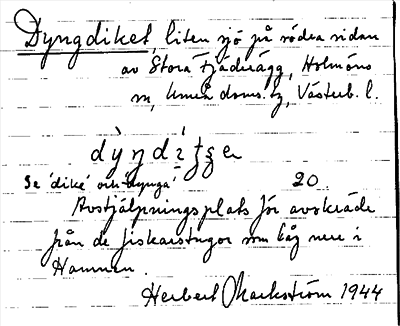 Dyngdiket, liten sjö på södra sidan
av Stora Fjäderägg, Holmöns
sn, Umeå doms. tg, Västerb. l.
Se 'dike' och 'dynga'. 20
Avstjälpningsplats för avskräde
från de fiskarstugor som låg nere i
Hamnen.
Herbert Markström 1944